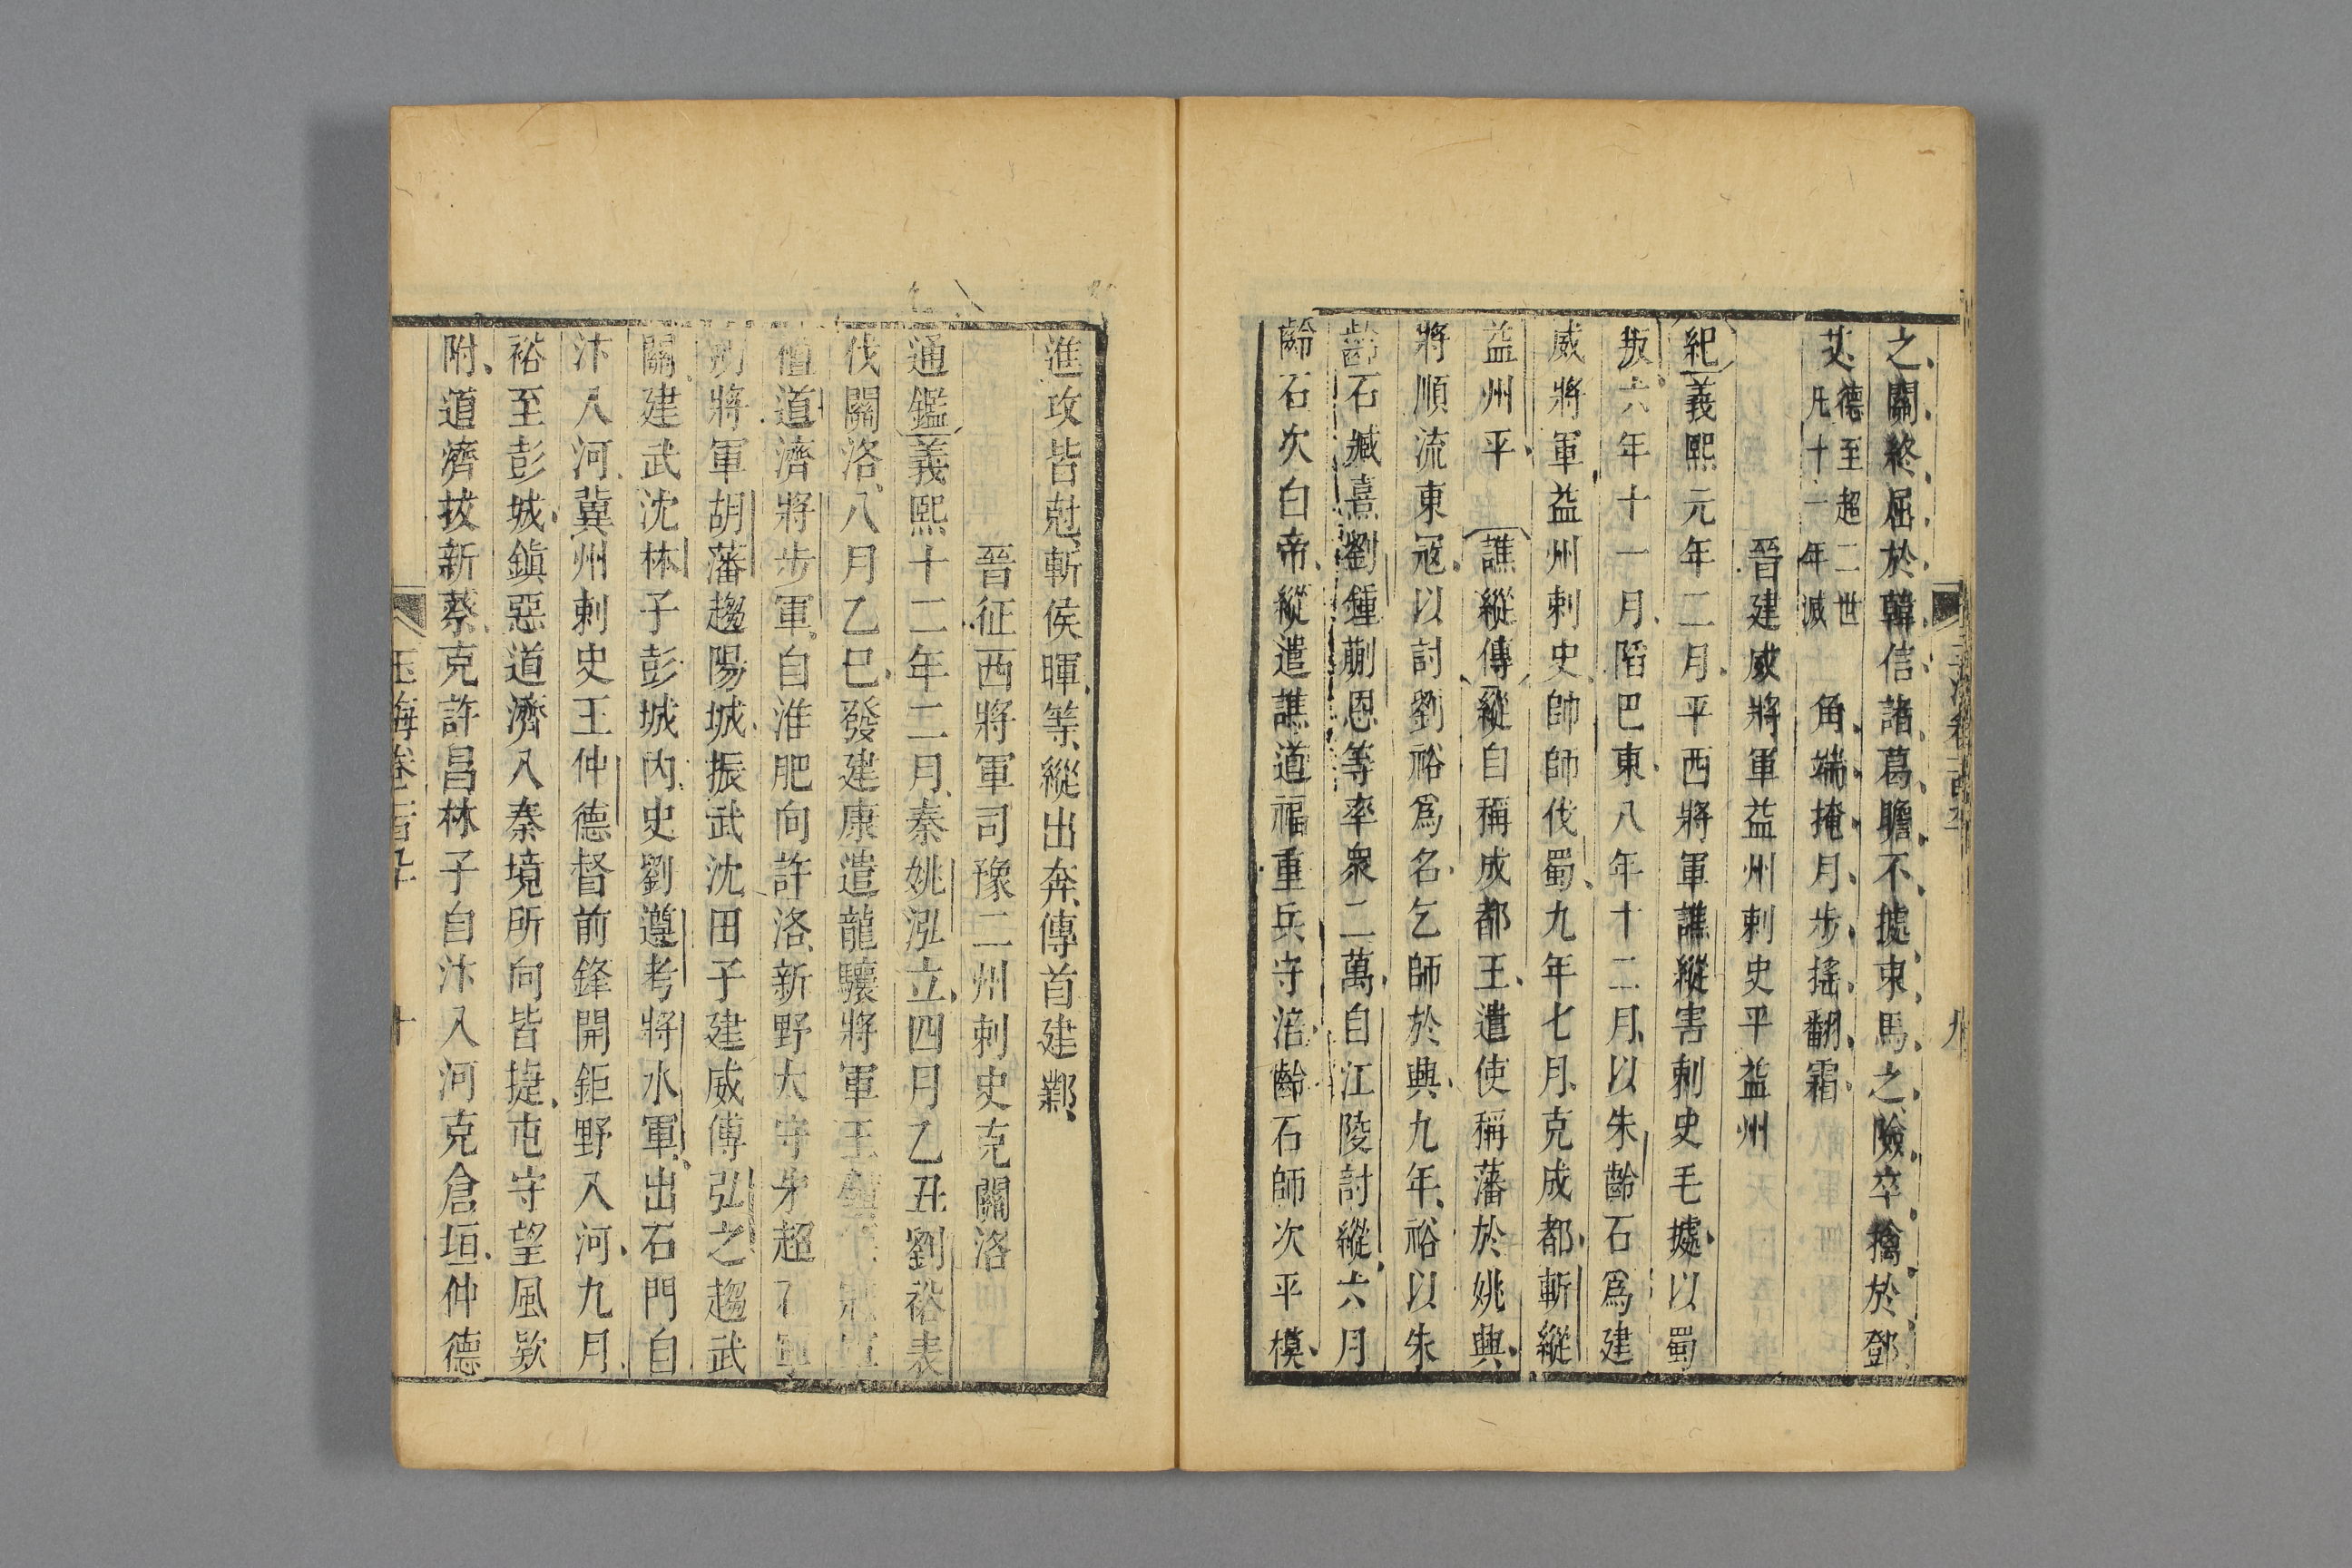 之關終屈於韓信諸葛瞻不據束馬之險卒擒於鄧
艾德至超二世凡十一年滅 角端掩月步搖翻霜
晉建威將軍益州刺史平益州
紀義熙元年二月平西將軍譙縱害刺史毛璩以蜀
叛六年十一月陷巴東八年十二月以朱齡石爲建
威將軍益州刺史帥師伐蜀九年七月克成都斬縱
益州平 譙縱傳縱自稱成都王遣使稱藩於姚興
將順流東寇以討劉裕爲名乞師於興九年裕以朱
齡石臧熹劉鍾蒯恩等率衆二萬自江陵討縱六月
齡石次白帝縱遣譙道福重兵守涪齡石師次平模
進攻皆尅斬侯暉等縱出奔傳首建鄴
晉征西將軍司豫二州刺史克關洛
通鑑義熙十二年二月秦姚泓立四月乙丑劉裕表
伐關洛八月乙巳發建康遣龍驤將軍王鎮
檀道濟將步軍自淮肥向許洛新野太守朱超石寧
朔將軍胡藩趨陽城振武沈田子建威傅弘之趨武
關建武沈林子彭城內史劉遵考將水軍出石門自
汴入河冀州刺史王仲德督前鋒開鉅野入河九月
裕至彭城鎭惡道濟入秦境所向皆捷屯守望風欵
附道濟拔新蔡克許昌林子自汴入河克倉垣仲德
玉海卷一百九十 十